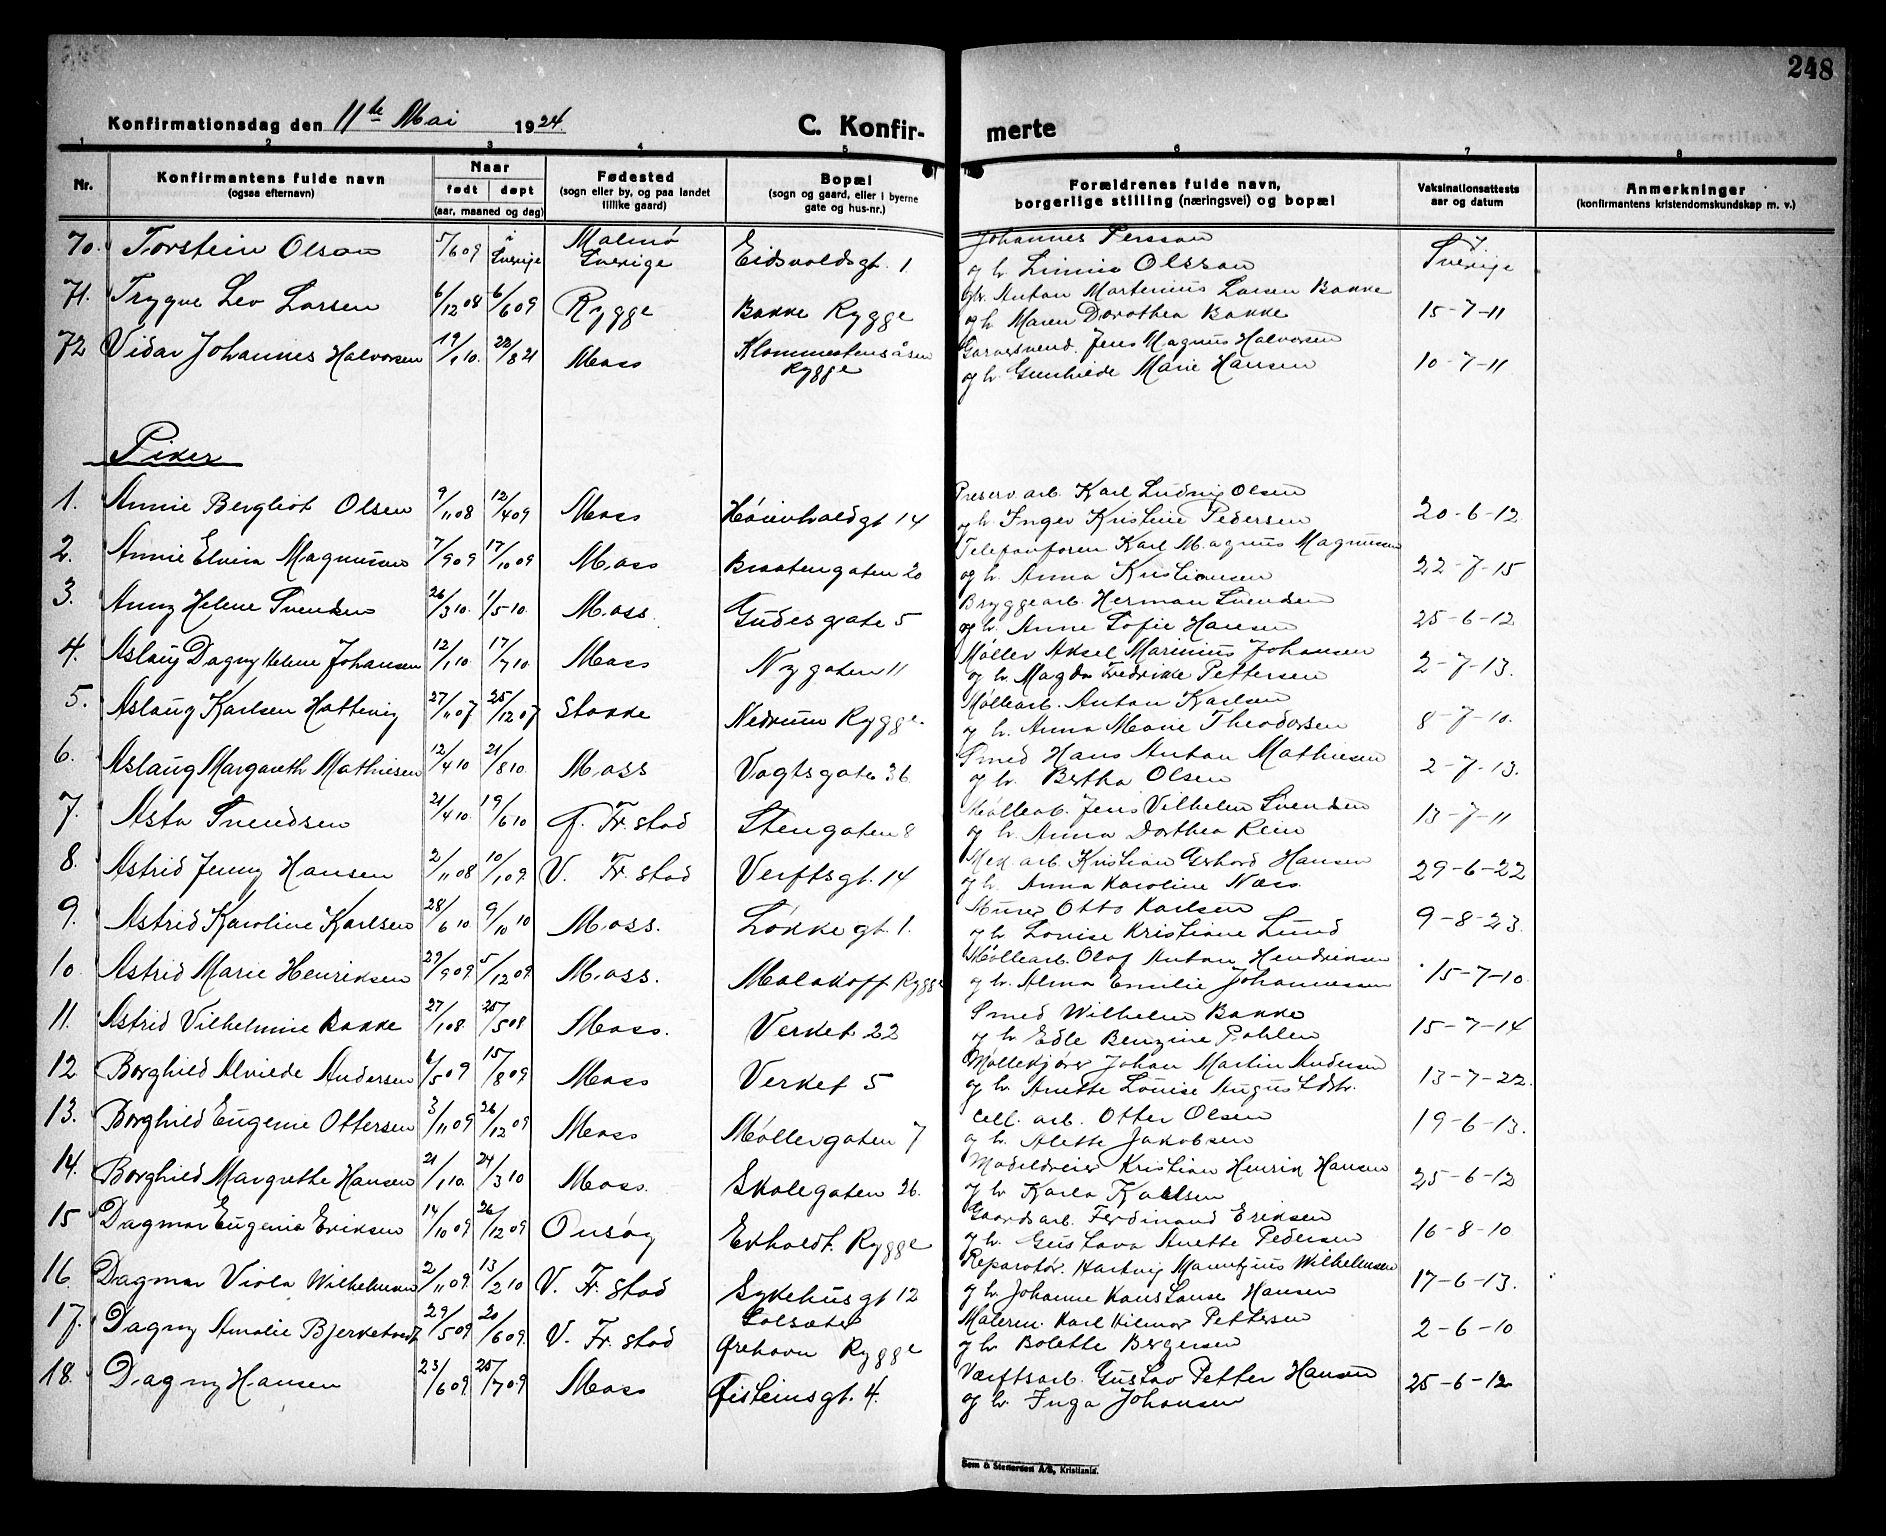 248
Konfirmationsdag den 11te Mai 1924
C. Konfir- merte
1 2 3 4 5 6 7 8
Nr. Konfirmantens fulde navn (ogsaa efternavn) Naar født døpt (aar, maaned og dag) Fødested (sogn eller by, og paa landet tillike gaard) Bopæl (sogn og gaard, eller i byerne gate og hus-nr.) Forældrenes fulde navn, borgerlige stilling (næringsvei) og bopæl Vaksinationsattests aar og datum Anmerkninger (konfirmantens kristendomskundskap m. v.)
70. Torstein Olson 5/6 09 i Sverige Malmø Sverige Eidsvoldsgt. 1 Johannes Persson og h. Linnia Olsson i Sverige
71. Trygve Leo Larsen 6/12 08 6/6 09 Rygge Bakke Rygge Gbr. Anton Martenius Larsen Bakke og h. Maren Dorothea Bakke 15-7-11
72 Vidar Johannes Halvorsen 19/1 10. 22/8 21 Moss Klommestensåsen Rygge Garversvend. Jens Magnus Halvorsen og h. Gunhilde Marie Hansen 10-7-11
Piker
1. Annie Bergliot Olsen 9/11 08 12/4 09 Moss Høienholdgt 14 Preserv. arb. Karl Ludvig Olsen og h. Inger Kristine Pedersen 20-6-12
2. Annie Elvira Magnusen 7/9 09 17/10 09 Moss Braatengaten 20 Telefonforen Karl Magnus Magnusen og h. Anna Kristiansen 22-7-15
3. Anny Helene Svendsen 26/3 10. 1/5 10. Moss. Gudesgate 5 Bryggearb. Herman Svendsen og h. Anne Sofie Hansen 25-6-12
4. Aslaug Dagny Helene Johansen 12/1 10 17/7 10 Moss Nygaten 11 Møller Aksel Marinius Johansen og h. Magda Fredrikke Pettersen 2-7-13.
5. Aslaug Karlsen Hattevig 27/11 07 25/12 07 Stokke Nedrum Rygge. Møllearb. Anton Karlsen og h. Anna Marie Theodorsen 8-7-10.
6. Aslaug Margareth Mathiesen 12/4 10 21/8 10 Moss Vogtsgaten 36 Smed Hans Anton Mathiesen og h. Bertha Olsen 2-7-13.
7. Asta Svendsen 21/4 10. 19/6 10 G. Fr. stad Stengaten 8 Møllearb. Jens Vilhelm Svendsen og h. Anna Dorthea Rein 13-7-11
8. Astrid Jenny Hansen 2/11 08 10/1 09. V. Fr. stad Verftsgt. 14 Mek. arb. Kristian Gerhard Hansen og h. Anna Karoline Næss. 29-6-22
9. Astrid Karoline Karlsen 28/6 10 9/10 10 Moss. Løkkegt. 1. Murer Otto Karlsen og h. Louise Kristiane Lund 9-8-23.
10. Astrid Marie Henriksen 29/9 09 5/12 09 Moss. Malakoff Rygge Møllearb. Olaf Anton Hendriksen og h. Alma Emilie Johannessen 15-7-10
11. Astrid Vilhelmine Bakke 27/1 08. 25/5 08 Moss. Verket 22 Smed Wilhelm Bakke og h. Edle Benzine Pohlen 15-7-14
12 Borghild Alvilde Andersen 6/5 09 15/8 09 Moss Verket 5 Møllekjører Johan Martin Andersen og h. Anette Louise Augustdtr. 13-7-22.
13. Borghild Eugenie Ottersen 3/11 09 26/12 09 Moss Møllergaten 7 Cell. arb. Otter Olsen og h. Alette Jakobsen 19-6-13.
14. Borghild Margrethe Hansen 21/1 10. 24/3 10 Moss. Skolegaten 26. Kristian Henrik Hansen og h. Karla Karlsen 25-6-12
15 Dagmar Eugenie Eriksen 14/10 09 26/12 09 Onsøy Ekholdt. Rygge Gaardsarb. Ferdinand Eriksen og h. Gustava Anette Pedersen 16-8-10
16. Dagmar Viola Wilhelmsen 2/11 09. 13/2 10 V. Fr. stad Sykehusgt 12 Reparatør. Hartvig Wilhelmsen og h. Johanne Konstanse Hansen 17-6-13.
17. Dagny Amalie 29/5 09 20/6 09. V. Fr. stad Solsæter Ørehavn Rygge Malerm. Karl Hilmar Pettersen og h. Bolette Bergersen 2-6-10
18. Dagny Hansen 23/6 09 25/7 09 Moss Øisteinsgt. 4. Værftsarb. Gustav Petter Hansen og h. Inga Johansen 25-6-12
Sem & Stenersen A/S, Kristiania.